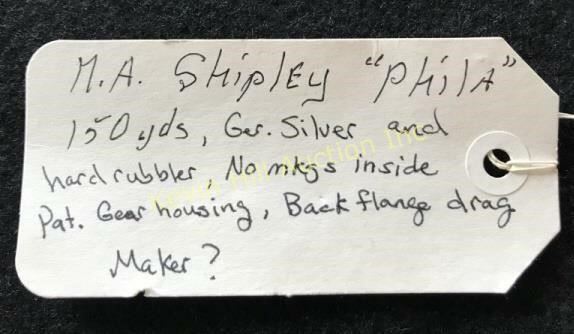 M.A. Shipley "Phila"
150 yds, Ger. Silver and
hard rubber, No mkgs inside
Pat. Gear housing, Back flange drag
Maker?